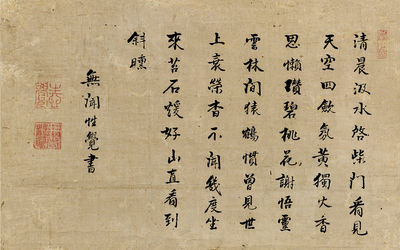 清晨汲水啓柴門看見
天空四歛氛黃獨火香
思懶瓚碧桃花謝悟靈
雲林間猿鶴慣曾見世
上衰榮杳不聞幾度坐
來苔石煖好山直看到
斜曛
無聞性覺書